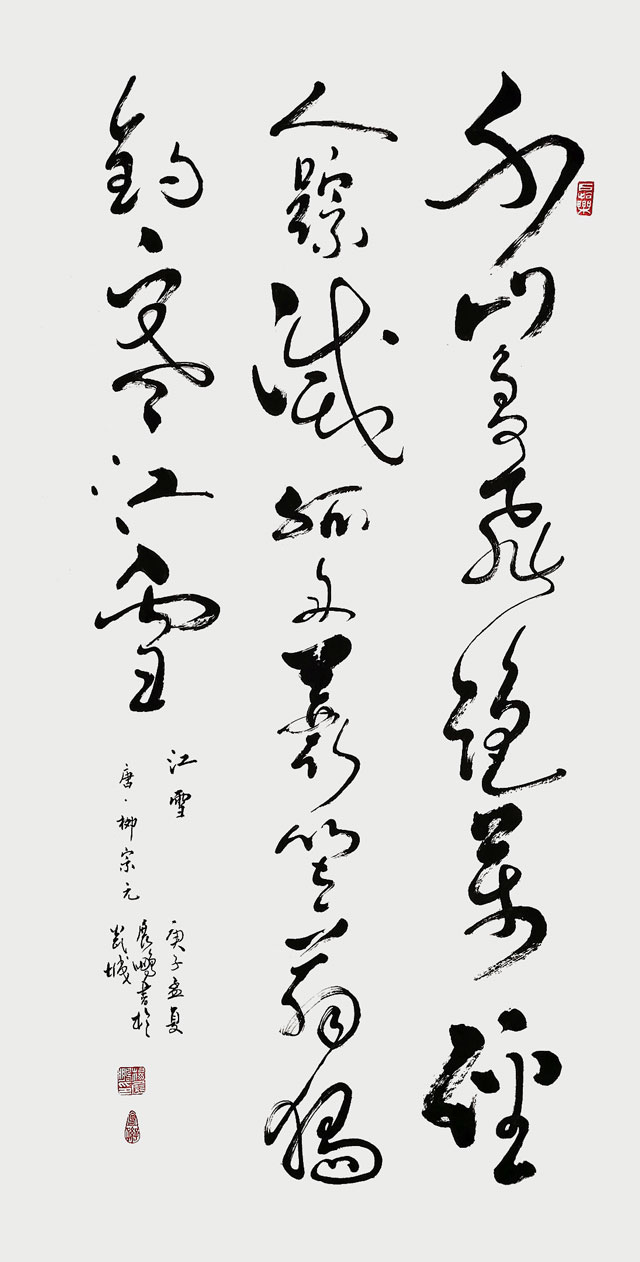 千山鳥飛絕萬徑
人踪滅孤舟蓑笠翁獨
釣寒江雪
江雪
唐·柳宗元
庚子孟夏
展鵬書於
城